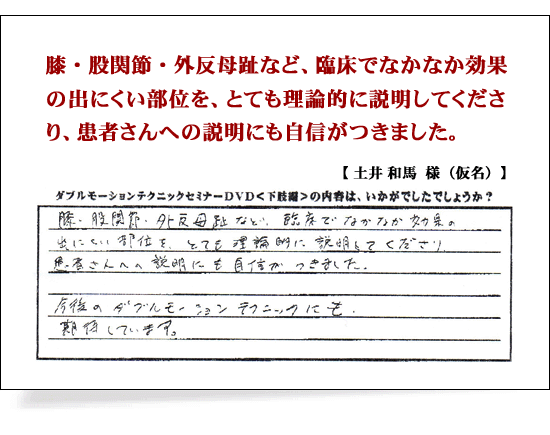 膝・股関節・外反母趾など、臨床でなかなか効果
の出にくい部位を、とても理論的に説明してくださ
り、患者さんへの説明にも自信がつきました。
【 土井 和馬 様（仮名）】
ダブルモーションテクニックセミナーDVD＜下肢編＞の内容は、いかがでしたでしょうか？
膝・股関節・外反母趾など、臨床でなかなか効果の
出にくい部位を、とても理論的に説明してくださり
患者さんへの説明にも自信がつきました。
今後のダブルモーションテクニックにも、
期待しています。